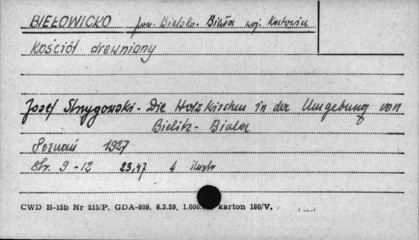 BIEŁOWICKO pow. Bielsko-Biała woj. Katowice
Kościół drewniany
Josef Strzygowski - Die Holzkirchen in der Umgebung von
Bielitz-Biala
Poznań 1927
Str. 9-12 23,47 4 ilustr
CWD B-15b Nr 515/P. GDA-809. 6.3.59. karton 180/V.